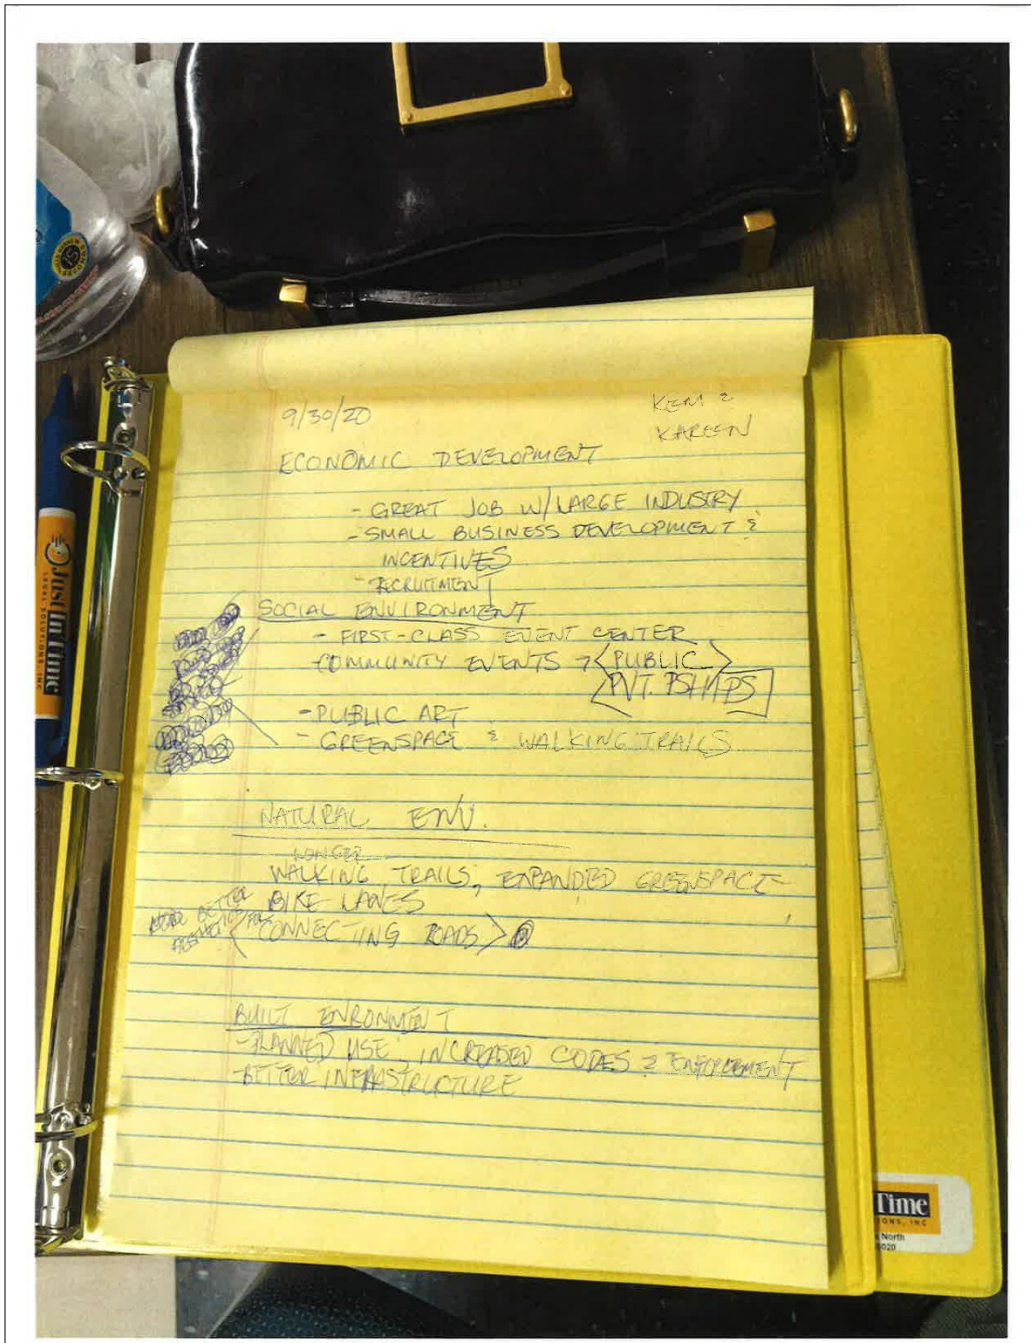 9/30/20
KEM &
KAREEN
ECONOMIC DEVELOPMENT
- GREAT JOB W/LARGE INDUSTRY
- SMALL BUSINESS DEVELOPMENT &
INCENTIVES
- RECRUITMENT
SOCIAL ENVIRONMENT
- FIRST-CLASS EVENT CENTER
- COMMUNITY EVENTS → PUBLIC
PVT. PSHIPS
- PUBLIC ART
- GREENSPACE & WALKING TRAILS
NATURAL ENV.
LONGER
WALKING TRAILS, EXPANDED GREENSPACE
BIKE LANES
BETTER
FOR
CONNECTING ROADS
BUILT ENRONMENT
- PLANNED USE, INCREASED CODES & ENFORCEMENT
- BETTER INFRASTRUCTURE
JustInTime
LEGAL SOLUTIONS, INC
Time
IONS, INC
North
6020